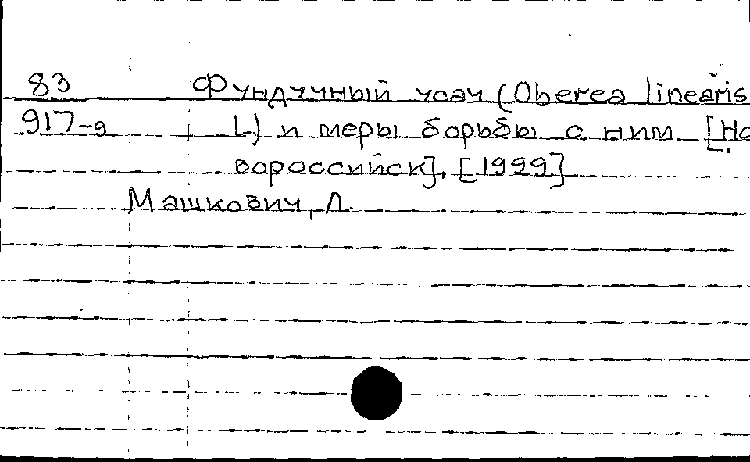 83 Фундучный усач (Oberea linearis
917-а L) и меры борьбы с ним [Но
вороссийск], [1999]
Машкович, Л.